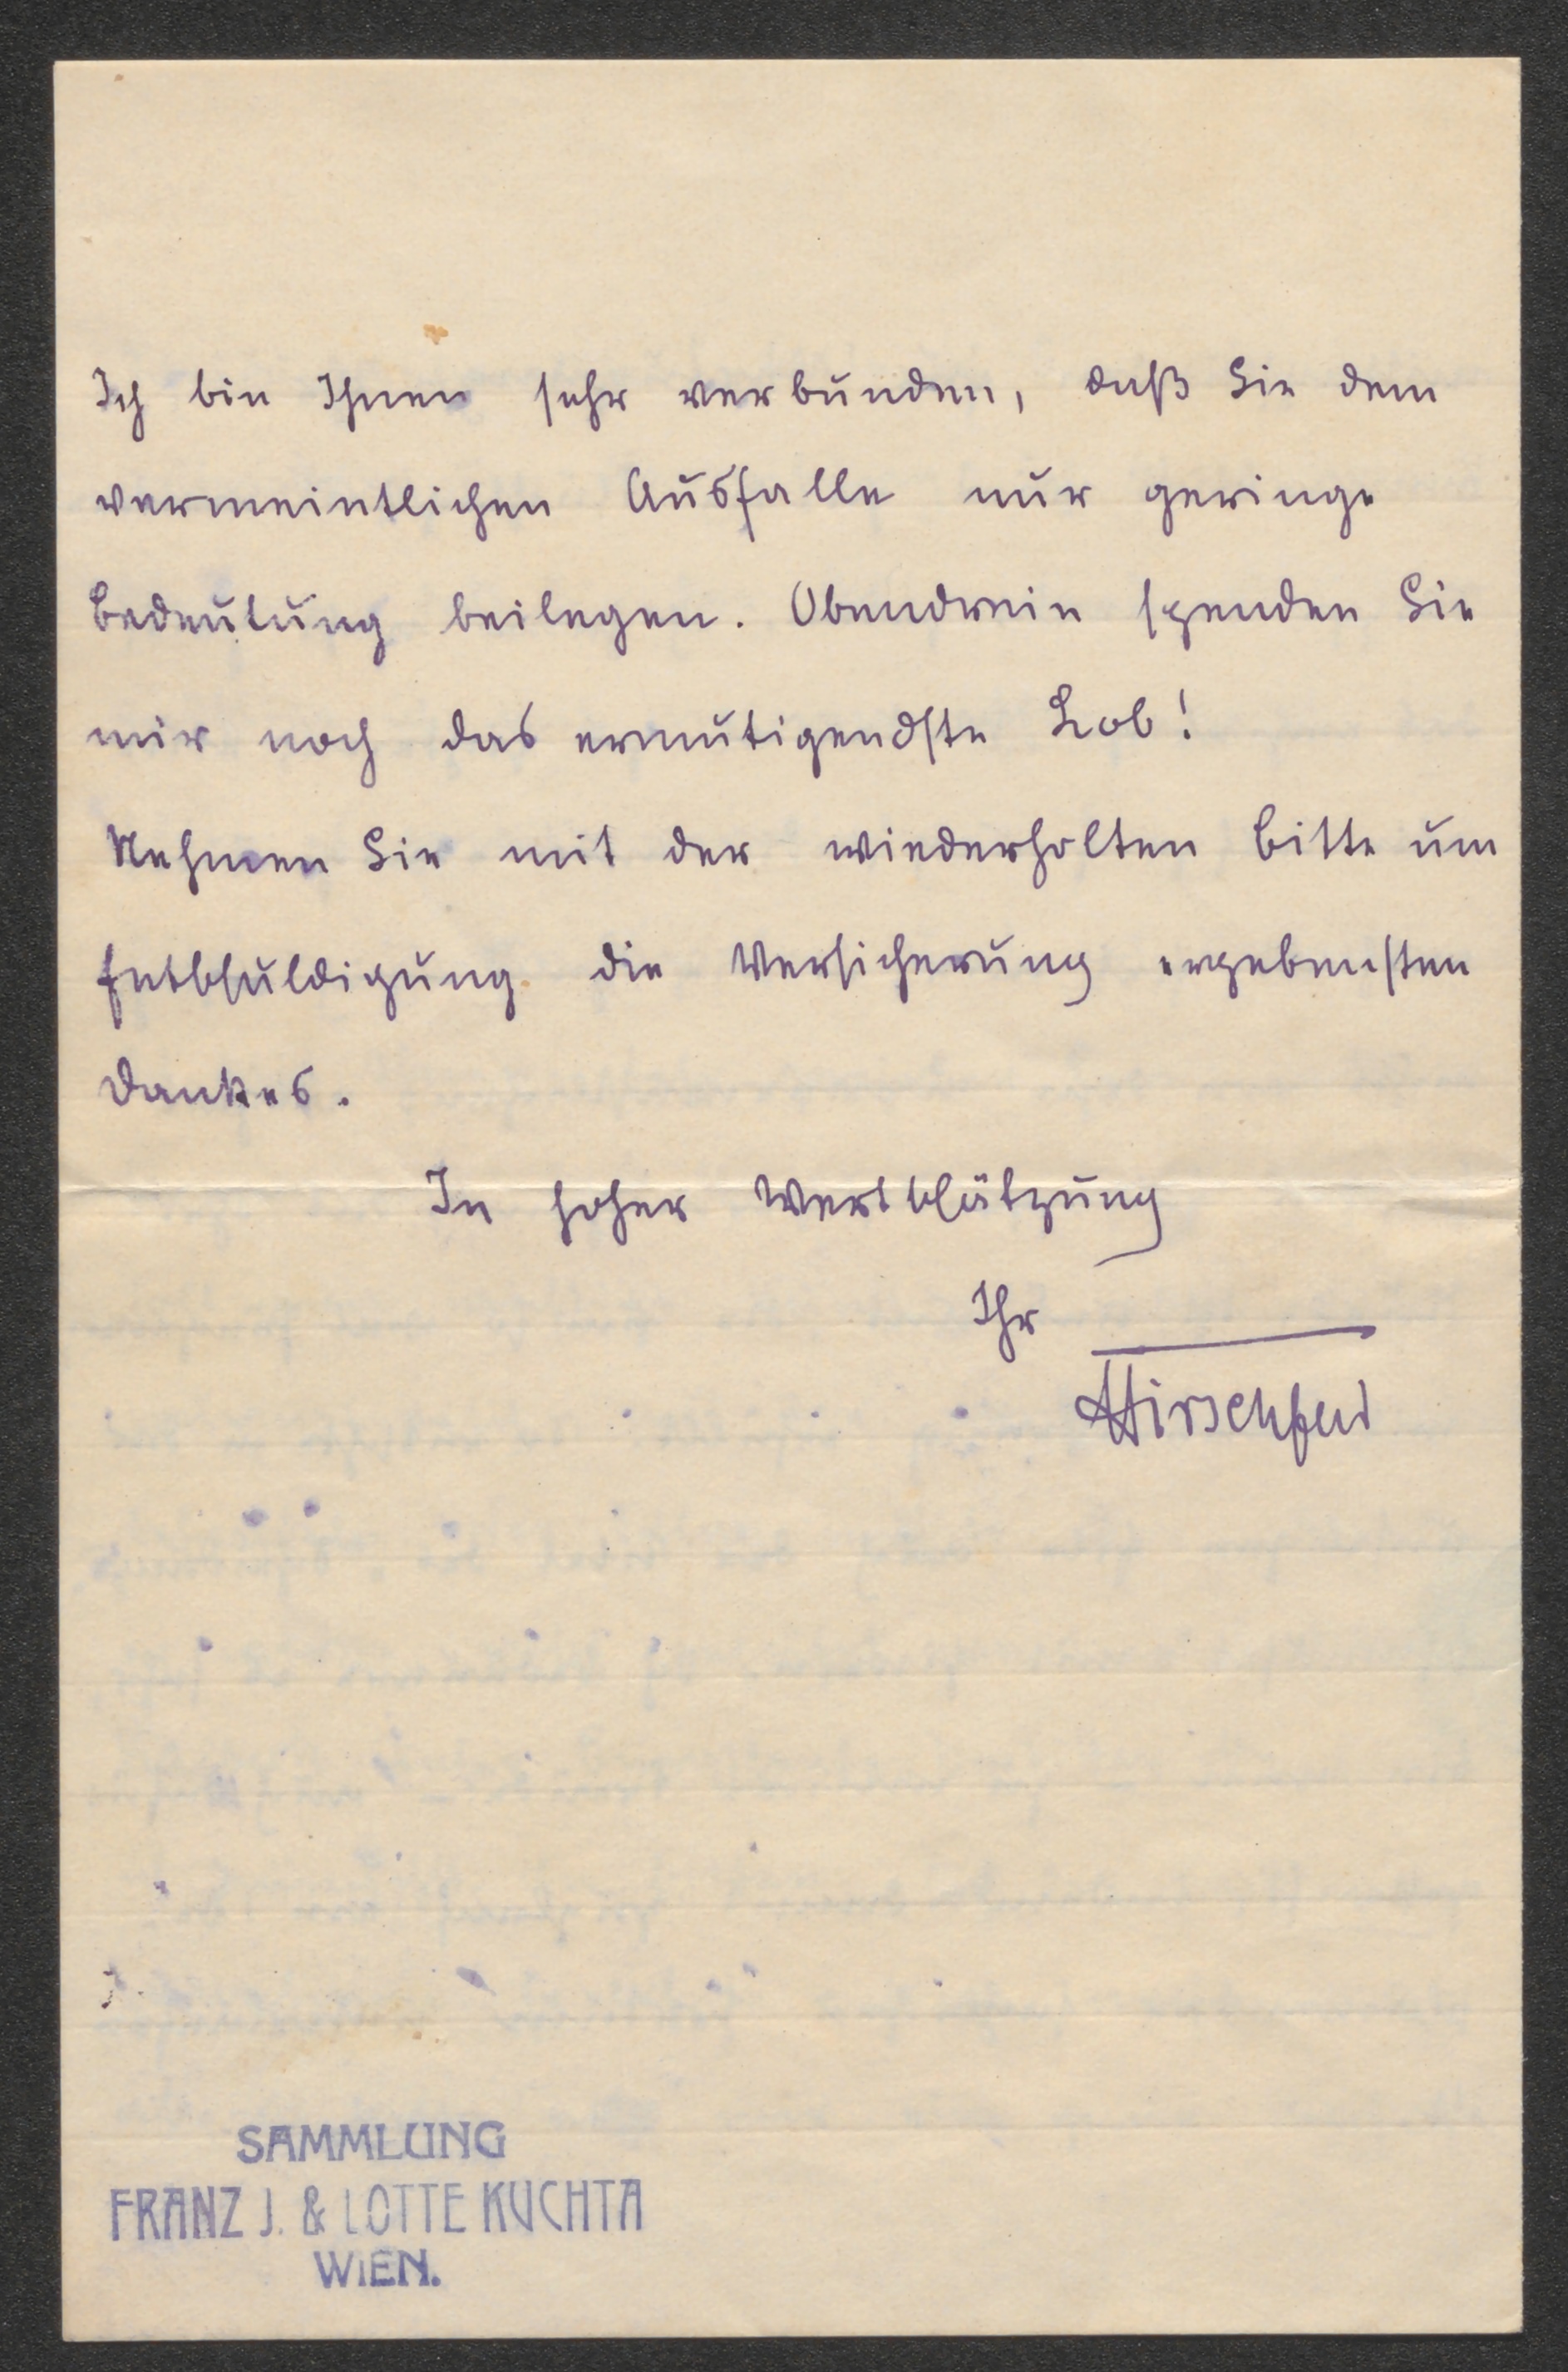 Ich bin Ihnen sehr verbunden, daß Sie dem
vermeintlichen Ausfalle nur geringe
Bedeutung beilegen. Obendrein spenden Sie
mir noch das ermutigendste Lob!
Nehmen Sie mit der wiederholten Bitte um
Entschuldigung die Versicherung ergebensten
Dankes.
In hoher Wertschätzung
Ihr
Hirschfeld
SAMMLUNG
FRANZ J. & LOTTE KUCHTA
WIEN.